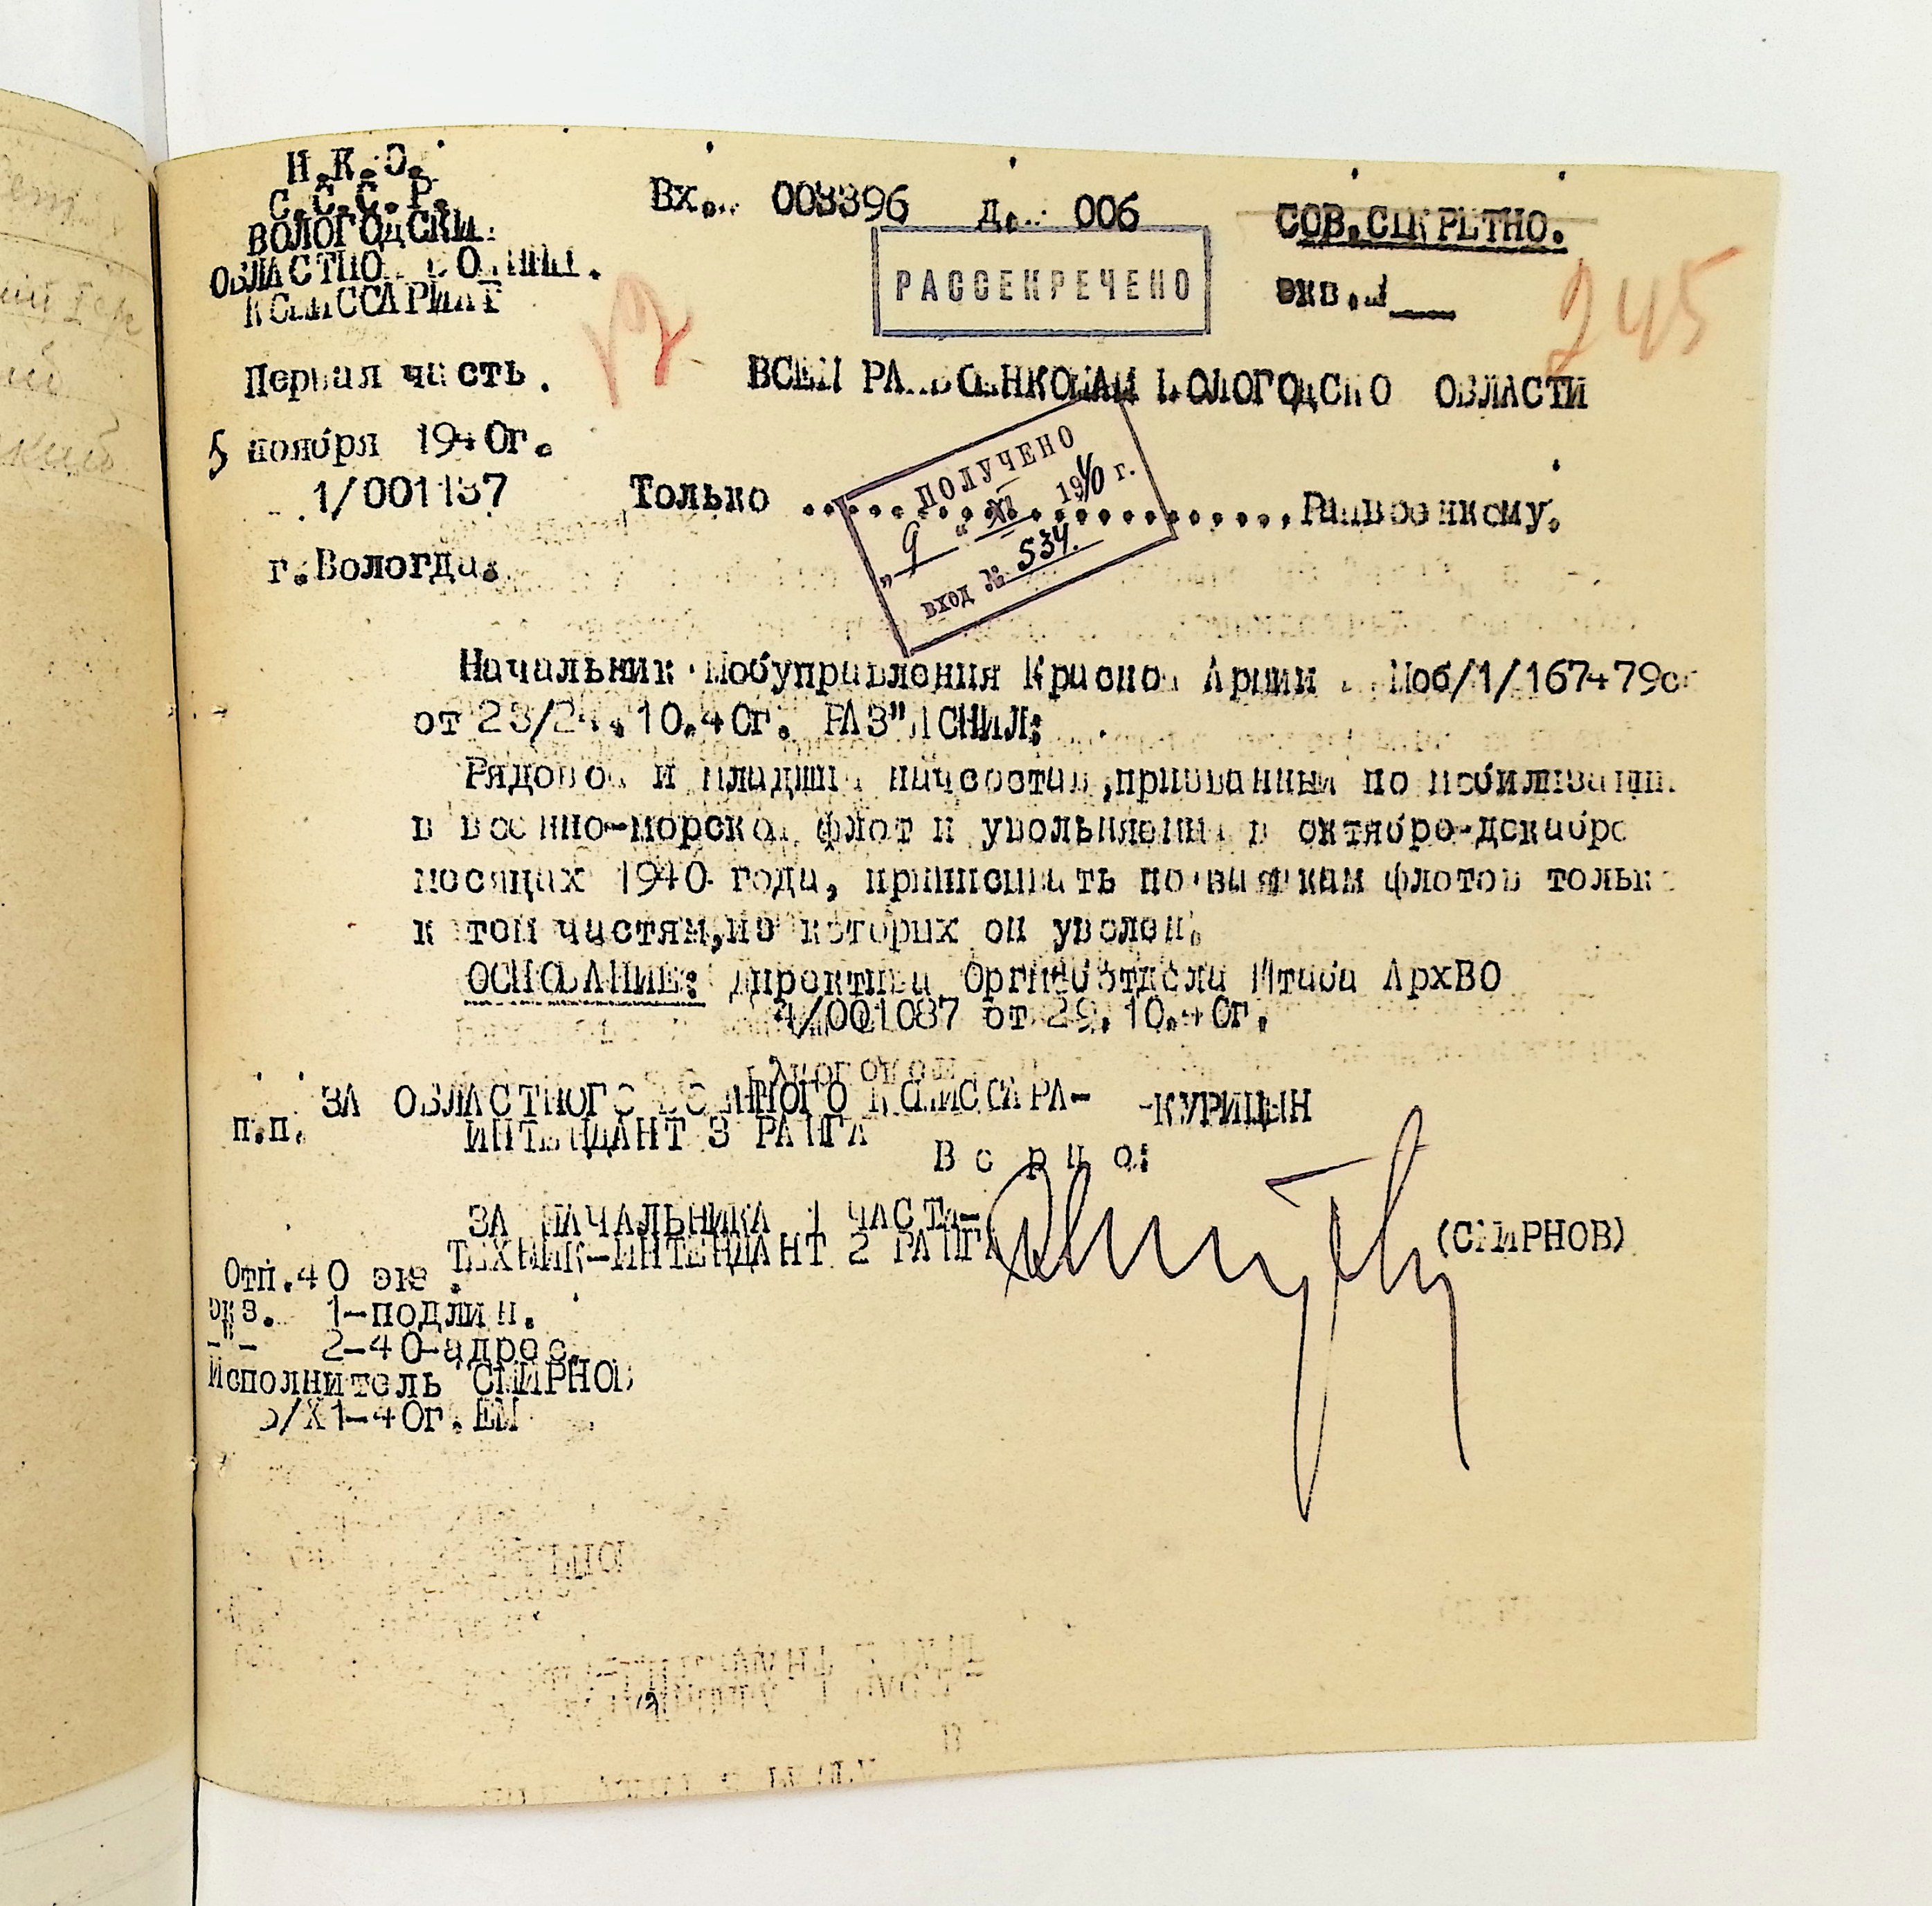 Н.К.О.
С.С.С.Р.
ВОЛОГОДСКИЙ
ОБЛАСТНОЙ ВОЕННЫЙ.
КОМИССАРИАТ
Вх... 003396 Д... 006
СОВ.СЕКРЕТНО.
РАССЕКРЕЧЕНО
экз.
245
Первая часть.
ВСЕМ РАЙВОЕНКОМАМ ВОЛОГОДСКОЙ ОБЛАСТИ
5 ноября 1940г.
1/001137
Только ........................Райвоенкому.
г.Вологда.
ПОЛУЧЕНО
„9“ XI 1940 г.
вход № 534.
Начальник Мобуправления Красной Армии Моб/1/167479сс
от 23/24.10.40г. РАЗ"ЯСНИЛ:
Рядовой и младший начсостав,призванный по мобилизации
в военно-морской флот и увольняемый в октябре-декабре
месяцах 1940 года, приписывать по заявкам флотов только
к тем частям,из которых он уволен.
ОСНОВАНИЕ: Директива Оргмоботдела Штаба АрхВО
4/001087 от 29.10.40г.
п.п. ЗА ОБЛАСТНОГО ВОЕННОГО КОМИССАРА- -КУРИЦЫН
ИНТЕНДАНТ 3 РАНГА
В е р н о:
ЗА НАЧАЛЬНИКА 1 ЧАСТИ-
ТЕХНИК-ИНТЕНДАНТ 2 РАНГА (СМИРНОВ)
Отп.40 экз.
экз. 1-подлин.
-"- 2-40-адрес.
Исполнитель СМИРНОВ
5/Х1-40г.ЕМ